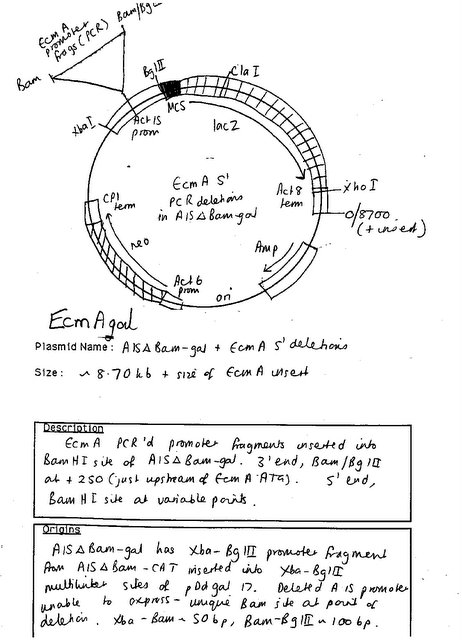 Bam/BgL
EcmA
promoter
frags (PCR)
Bam
BglII
Cla I
Xba I
Act 15
prom
MCS
lacZ
EcmA 5'
PCR deletions
in A15Δ Bam-gal
CP1
term
Act 8
term
Xho I
0/8700
(+ insert)
neo
Amp
Act 6
prom
ori
EcmA gal
Plasmid Name: A15Δ Bam-gal + EcmA 5' deletions
Size: ~ 8.70 kb + size of EcmA insert
Description
EcmA PCR'd promoter fragments inserted into
BamHI site of A15Δ Bam-gal. 3' end, Bam/BglII
at +250 (just upstream of EcmA ATG). 5' end,
BamHI site at variable points.
Origins
A15Δ Bam-gal has Xba-BglII promoter fragment
from A15Δ Bam-CAT inserted into Xba-BglII
multilinker sites of pDdgal 17. Deleted A15 promoter
unable to express - unique Bam site at point of
deletion. Xba-Bam ~ 50bp, Bam-BglII ~ 100bp.